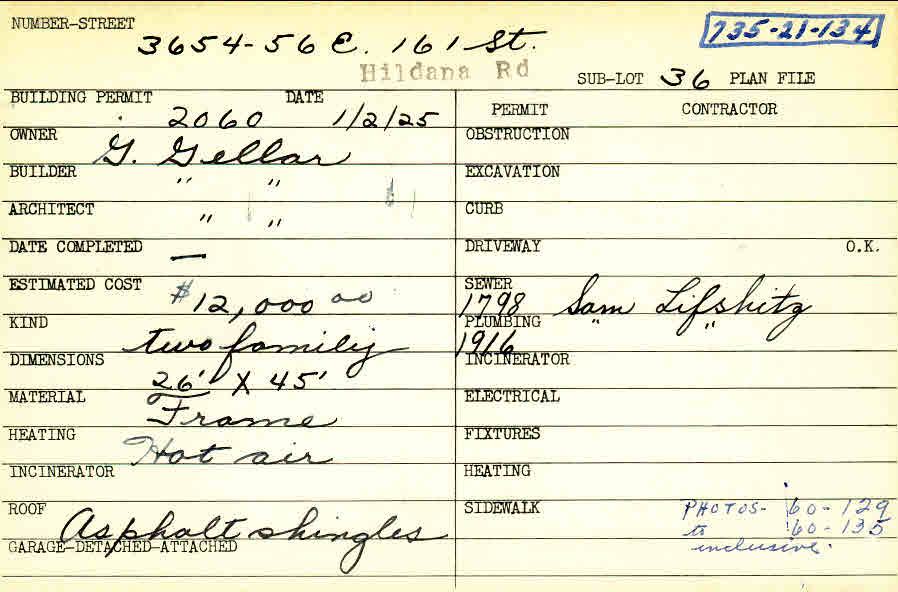 NUMBER-STREET 3654-56 E. 161 St. 735-21-134
Hildana Rd SUB-LOT 36 PLAN FILE
BUILDING PERMIT 2060 DATE 1/2/25
OWNER G. Gellar
BUILDER " "
ARCHITECT " "
DATE COMPLETED —
ESTIMATED COST $12,000 00
KIND two family
DIMENSIONS 26' X 45'
MATERIAL Frame
HEATING Hot air
INCINERATOR
ROOF Asphalt shingles
GARAGE-DETACHED-ATTACHED
PERMIT CONTRACTOR
OBSTRUCTION
EXCAVATION
CURB
DRIVEWAY O.K.
SEWER 1798 Sam Lifshitz
PLUMBING 1916 " "
INCINERATOR
ELECTRICAL
FIXTURES
HEATING
SIDEWALK
PHOTOS- 60-129
to 60-135
inclusive.